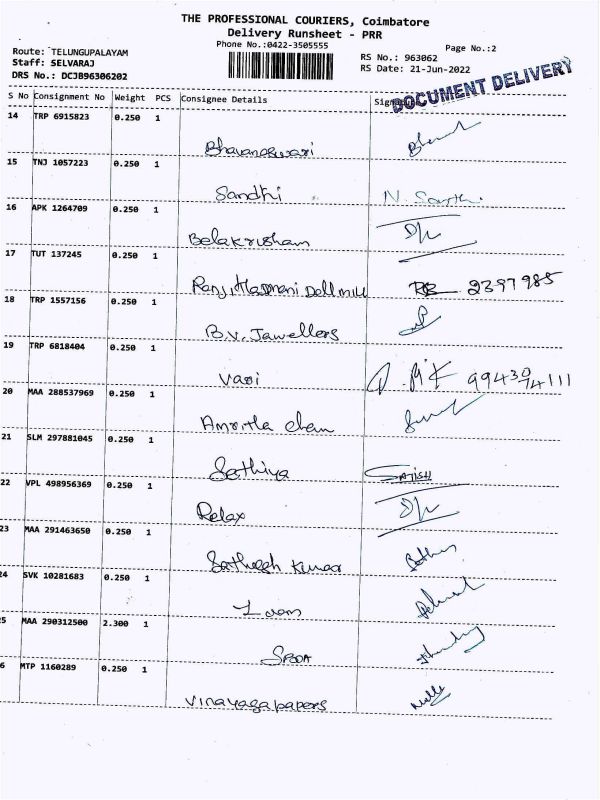 THE PROFESSIONAL COURIERS, Coimbatore
Delivery Runsheet - PRR
Phone No.:0422-3505555
Page No.:2
Route: TELUNGUPALAYAM
Staff: SELVARAJ
DRS No.: DCJB96306202
RS No.: 963062
RS Date: 21-Jun-2022
DOCUMENT DELIVERY
S No Consignment No Weight PCS Consignee Details
14 TRP 6915823 0.250 1
Bhavaneswari
15 TNJ 1057223 0.250 1
Sandhi
16 APK 1264709 0.250 1
Belakrisham
17 TUT 137245 0.250 1
2397985
18 TRP 1557156 0.250 1
B.V. Jawellers
19 TRP 6818404 0.250 1
Vasi
20 MAA 288537969 0.250 1
Amritha chem
21 SLM 297881045 0.250 1
Sathiya SATISH
22 VPL 498956369 0.250 1
Relax
23 MAA 291463650 0.250 1
Satheesh Kumar
24 SVK 10281683 0.250 1
5 MAA 290312500 2.300 1
6 MTP 1160289 0.250 1
Vinayaga papers